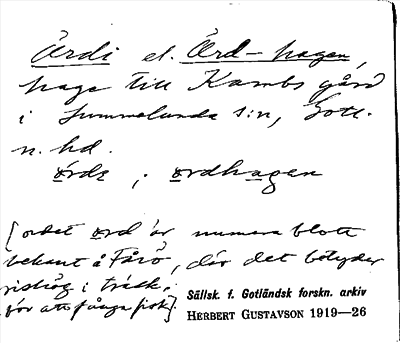 Ärdi el. Ärd-hagen,
hage till Kambs gård
i Lummelunda s:n, Gotl.
n. hd.
ärde ; ærdhagen
[ordet ærd är numera blott
bekant å Fårö, där det betyder
rishög i träsk,
för att fånga fisk].
Sällsk. f. Gotländsk forskn. arkiv
HERBERT GUSTAVSON 1919—26